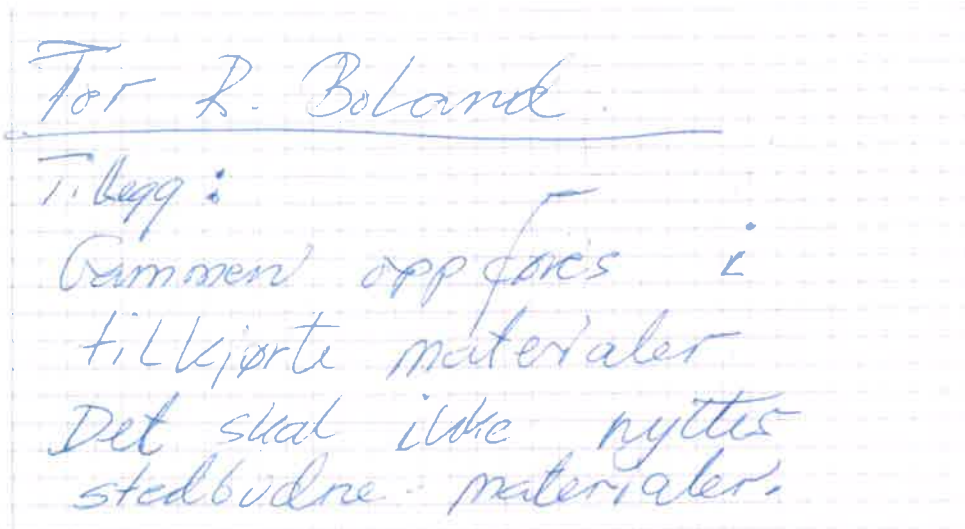 Tor R. Boland
Tillegg:
Gammen oppføres i
tilkjørte materialer
Det skal ikke nyttes
stedbudne materialer.